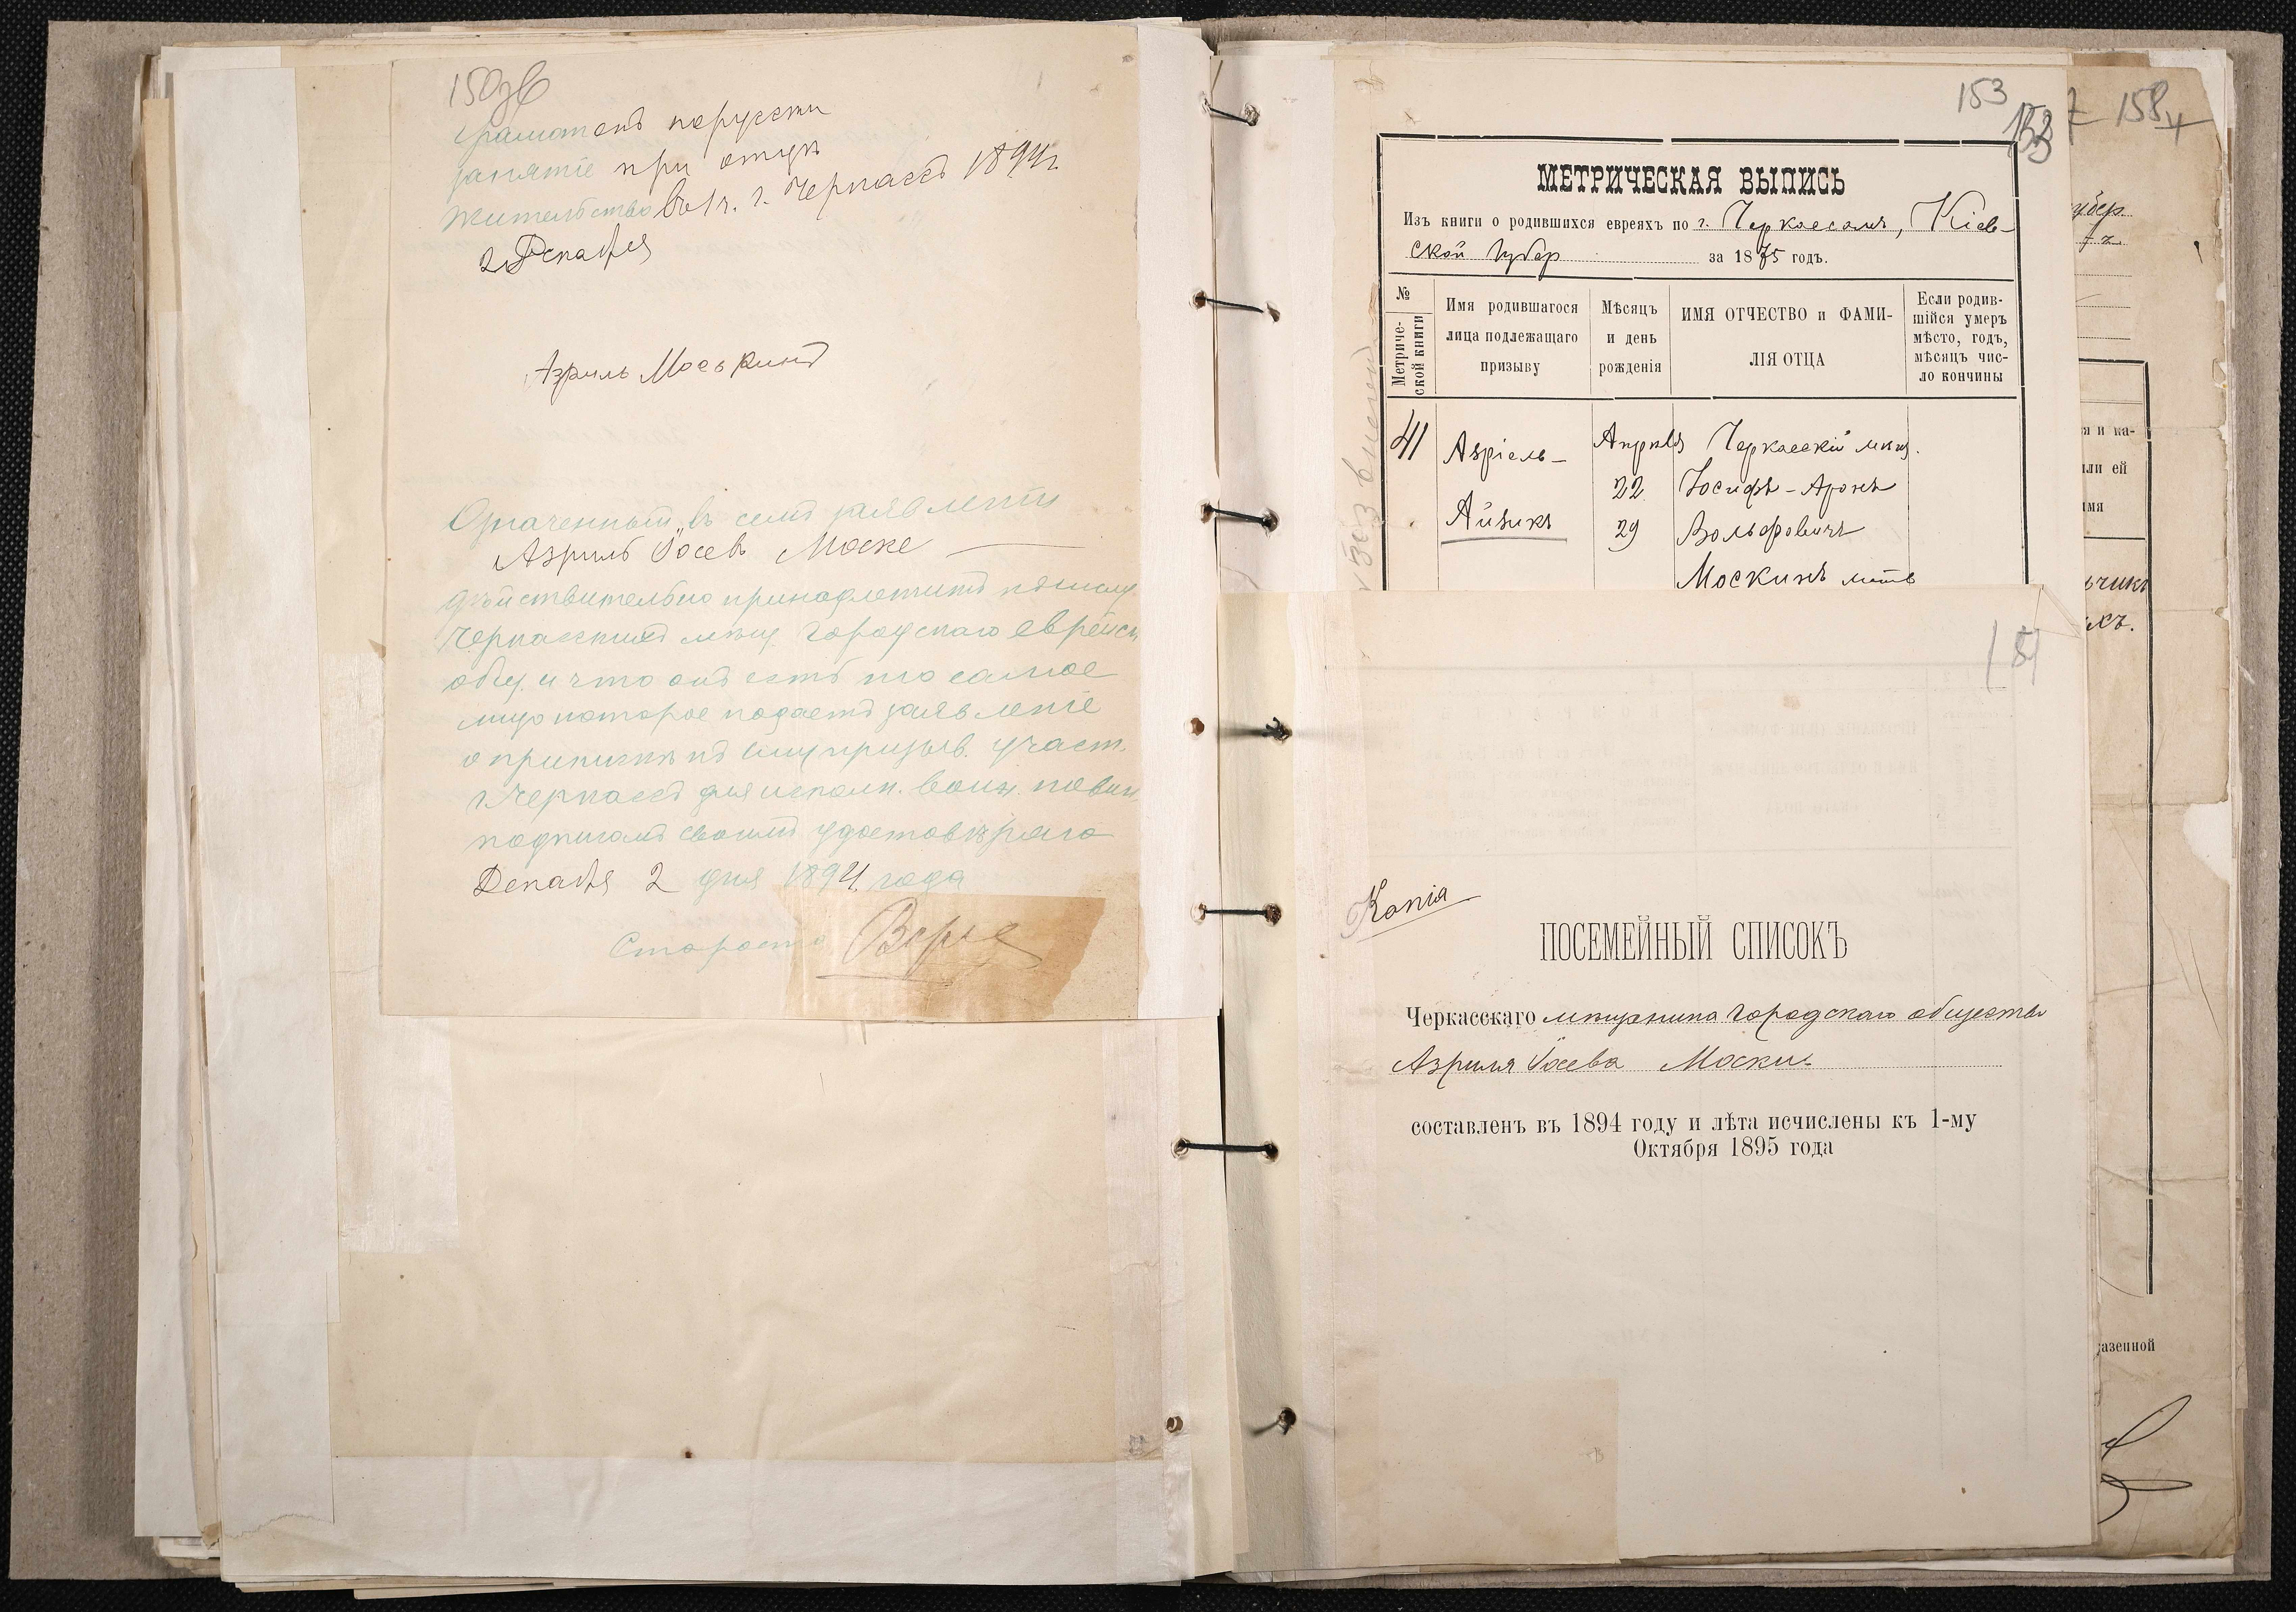 150об
грамотенъ порусски
занятіе при отцѣ
жительство въ 1 ч. г. Черкассъ 1894 г.
2 Декабря
Азриль Моськинъ
Означенный въ семъ заявленіи
Азриль Іосевъ Моске
дѣйствительно принадлежитъ къ
Черкасскимъ мѣщ. городскаго еврейск
общ. и что онъ естъ то самое
лицо которое подаетъ заявленіе
о припискѣ къ призыв. участ.
г. Черкассъ для исполн. воин. повин.
подписомъ своимъ удостовѣряю
Декабря 2 дня 1894 года
Староста
153
153
МЕТРИЧЕСКАЯ ВЫПИСЬ
Изъ книги о родившихся евреяхъ по г. Черкассамъ, Кіев-
ской Губер за 1875 годъ.
№
Метриче-
ской книги
Имя родившагося
лица подлежащаго
призыву
Мѣсяцъ
и день
рожденія
ИМЯ ОТЧЕСТВО и ФАМИ-
ЛІЯ ОТЦА
Если родив-
шійся умеръ
мѣсто, годъ,
мѣсяцъ чис-
ло кончины
41
Азріель-
Айзикъ
Апрѣля
22
29
Черкасскій мѣщ.
Іосифъ-Аронъ
Вольфовичъ
Москинъ
151
Копія
ПОСЕМЕЙНЫЙ СПИСОКЪ
Черкасскаго мѣщанина городскаго общества
Азриля Іосева Моски
составленъ въ 1894 году и лѣта исчислены къ 1-му
Октября 1895 года
158
убер.
я и на-
или ей
имя
ьчикъ
ихъ.
азенной